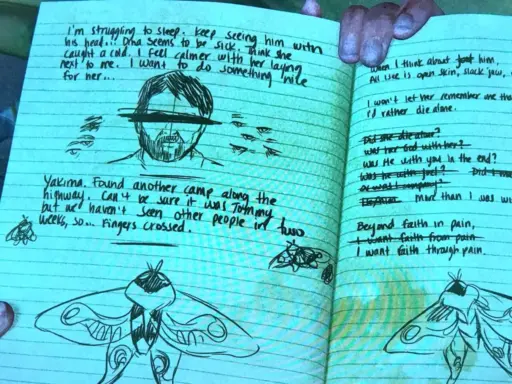 I'm struggling to sleep. Keep seeing him with
his head... Dina seems to be sick. Think she
caught a cold. I feel calmer with her laying
next to me. I want to do something nice
for her...
Yakima. Found another camp along the
highway. Can't be sure it was Tommy
but we haven't seen other people in two
weeks, so... Fingers crossed.
When I think about him,
All I see is open skin, slack jaw,
I won't let her remember me tha
I'd rather die alone.
Did she die alone?
Was her God with her?
Was He with you in the end?
Was he with Joel? Did I
Or was I company?
More than I was
Beyond faith in pain,
I want faith from pain
I want faith through pain.